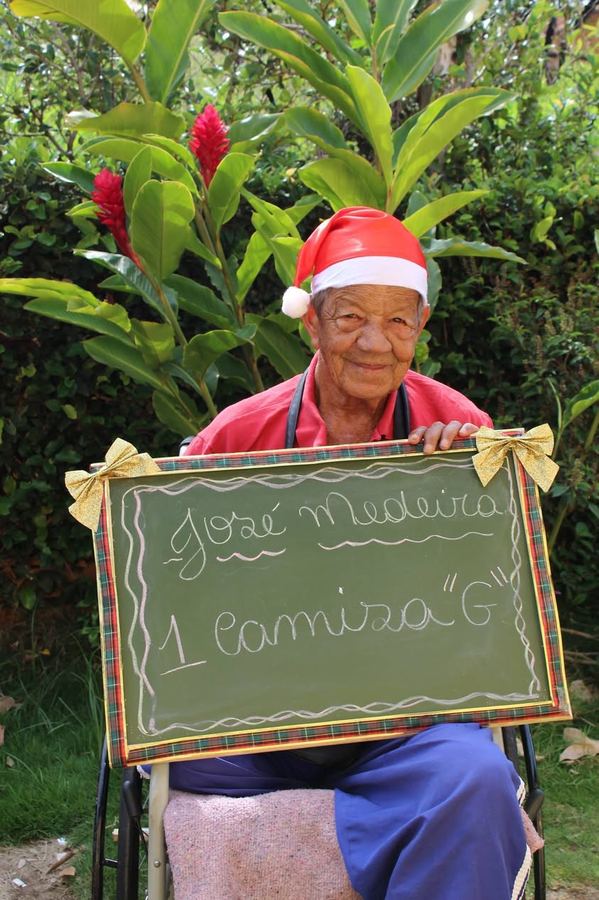 José Medeira.
1 Camisa "G"